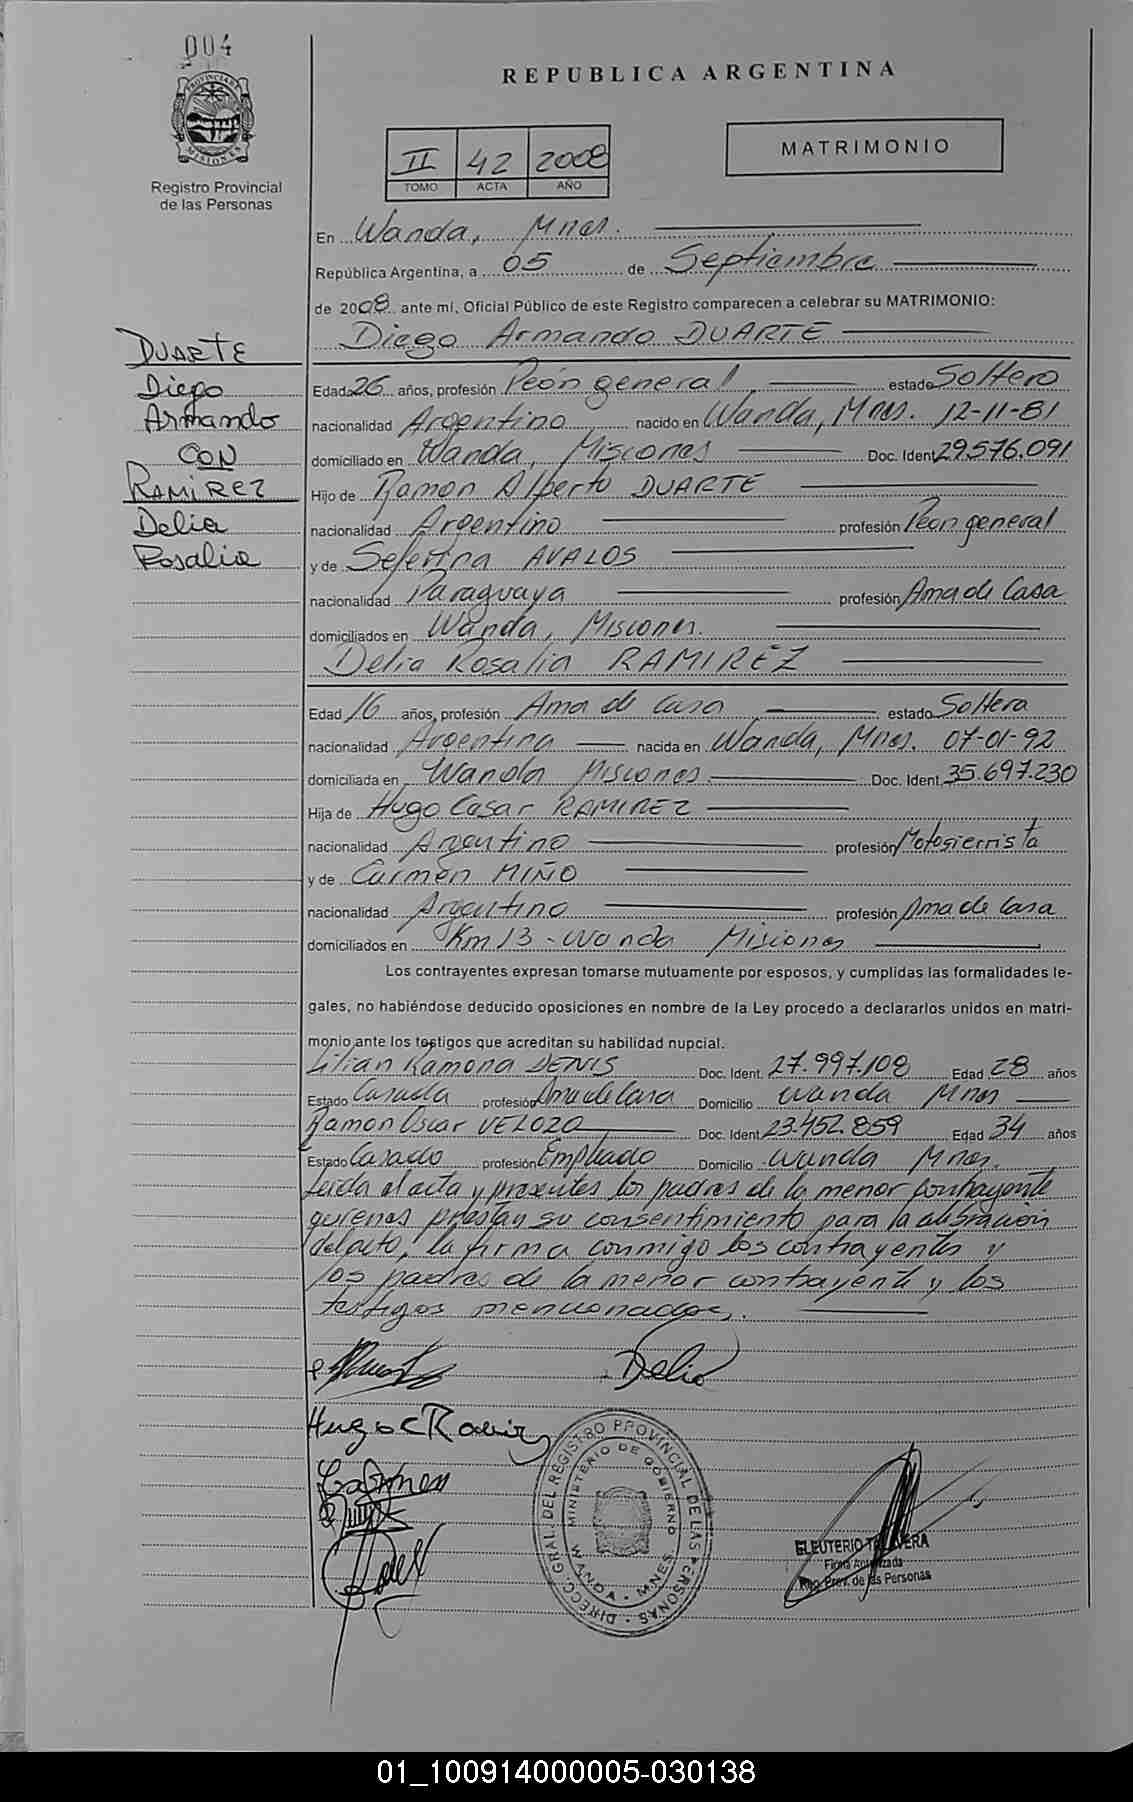 004
PROVINCIA DE
MISIONES
Registro Provincial
de las Personas
REPUBLICA ARGENTINA
II 42 2008
TOMO ACTA AÑO
MATRIMONIO
En Wanda, Mnes.
República Argentina, a 05 de Septiembre
de 2008 ante mi, Oficial Público de este Registro comparecen a celebrar su MATRIMONIO:
Diego Armando DUARTE
DUARTE
Diego
Armando
CON
RAMIREZ
Delia
Rosalia
Edad 26 años, profesión Peón general estado Soltero
nacionalidad Argentino nacido en Wanda, Mnes. 12-11-81
domiciliado en Wanda, Misiones Doc. Ident 29.576.091
Hijo de Ramon Alberto DUARTE
nacionalidad Argentino profesión Peon general
y de Seferina AVALOS
nacionalidad Paraguaya profesión Ama de Casa
domiciliados en Wanda, Misiones.
Delia Rosalia RAMIREZ
Edad 16 años, profesión Ama de Casa estado Soltera
nacionalidad Argentina nacida en Wanda, Mnes. 07-01-92
domiciliada en Wanda Misiones Doc. Ident. 35.697.230
Hija de Hugo Cesar RAMIREZ
nacionalidad Argentino profesión Motosierrista
y de Carmen MIÑO
nacionalidad Argentina profesión Ama de Casa
domiciliados en Km 13 - Wanda Misiones
Los contrayentes expresan tomarse mutuamente por esposos, y cumplidas las formalidades le-
gales, no habiéndose deducido oposiciones en nombre de la Ley procedo a declararlos unidos en matri-
monio ante los testigos que acreditan su habilidad nupcial.
Lilian Ramona DENIS Doc. Ident. 27.997.108 Edad 28 años
Estado Casada profesión Ama de Casa Domicilio Wanda Mnes
Ramon Oscar VELOZO Doc. Ident 23.452.859 Edad 34 años
Estado Casado profesión Empleado Domicilio Wanda Mnes.
Leida el acta y presentes los padres de la menor contrayente
quienes prestan su consentimiento para la celebración
del acto, la firma conmigo los contrayentes y
los padres de la menor contrayente y los
testigos mencionados.
Delia
Hugo C Ramirez
Carmen
DIREC. GRAL. DEL REGISTRO PROVINCIAL DE LAS PERSONAS
MINISTERIO DE GOBIERNO
WANDA - MNES
ELEUTERIO TALAVERA
Firma Autorizada
Reg. Prov. de las Personas
01_100914000005-030138